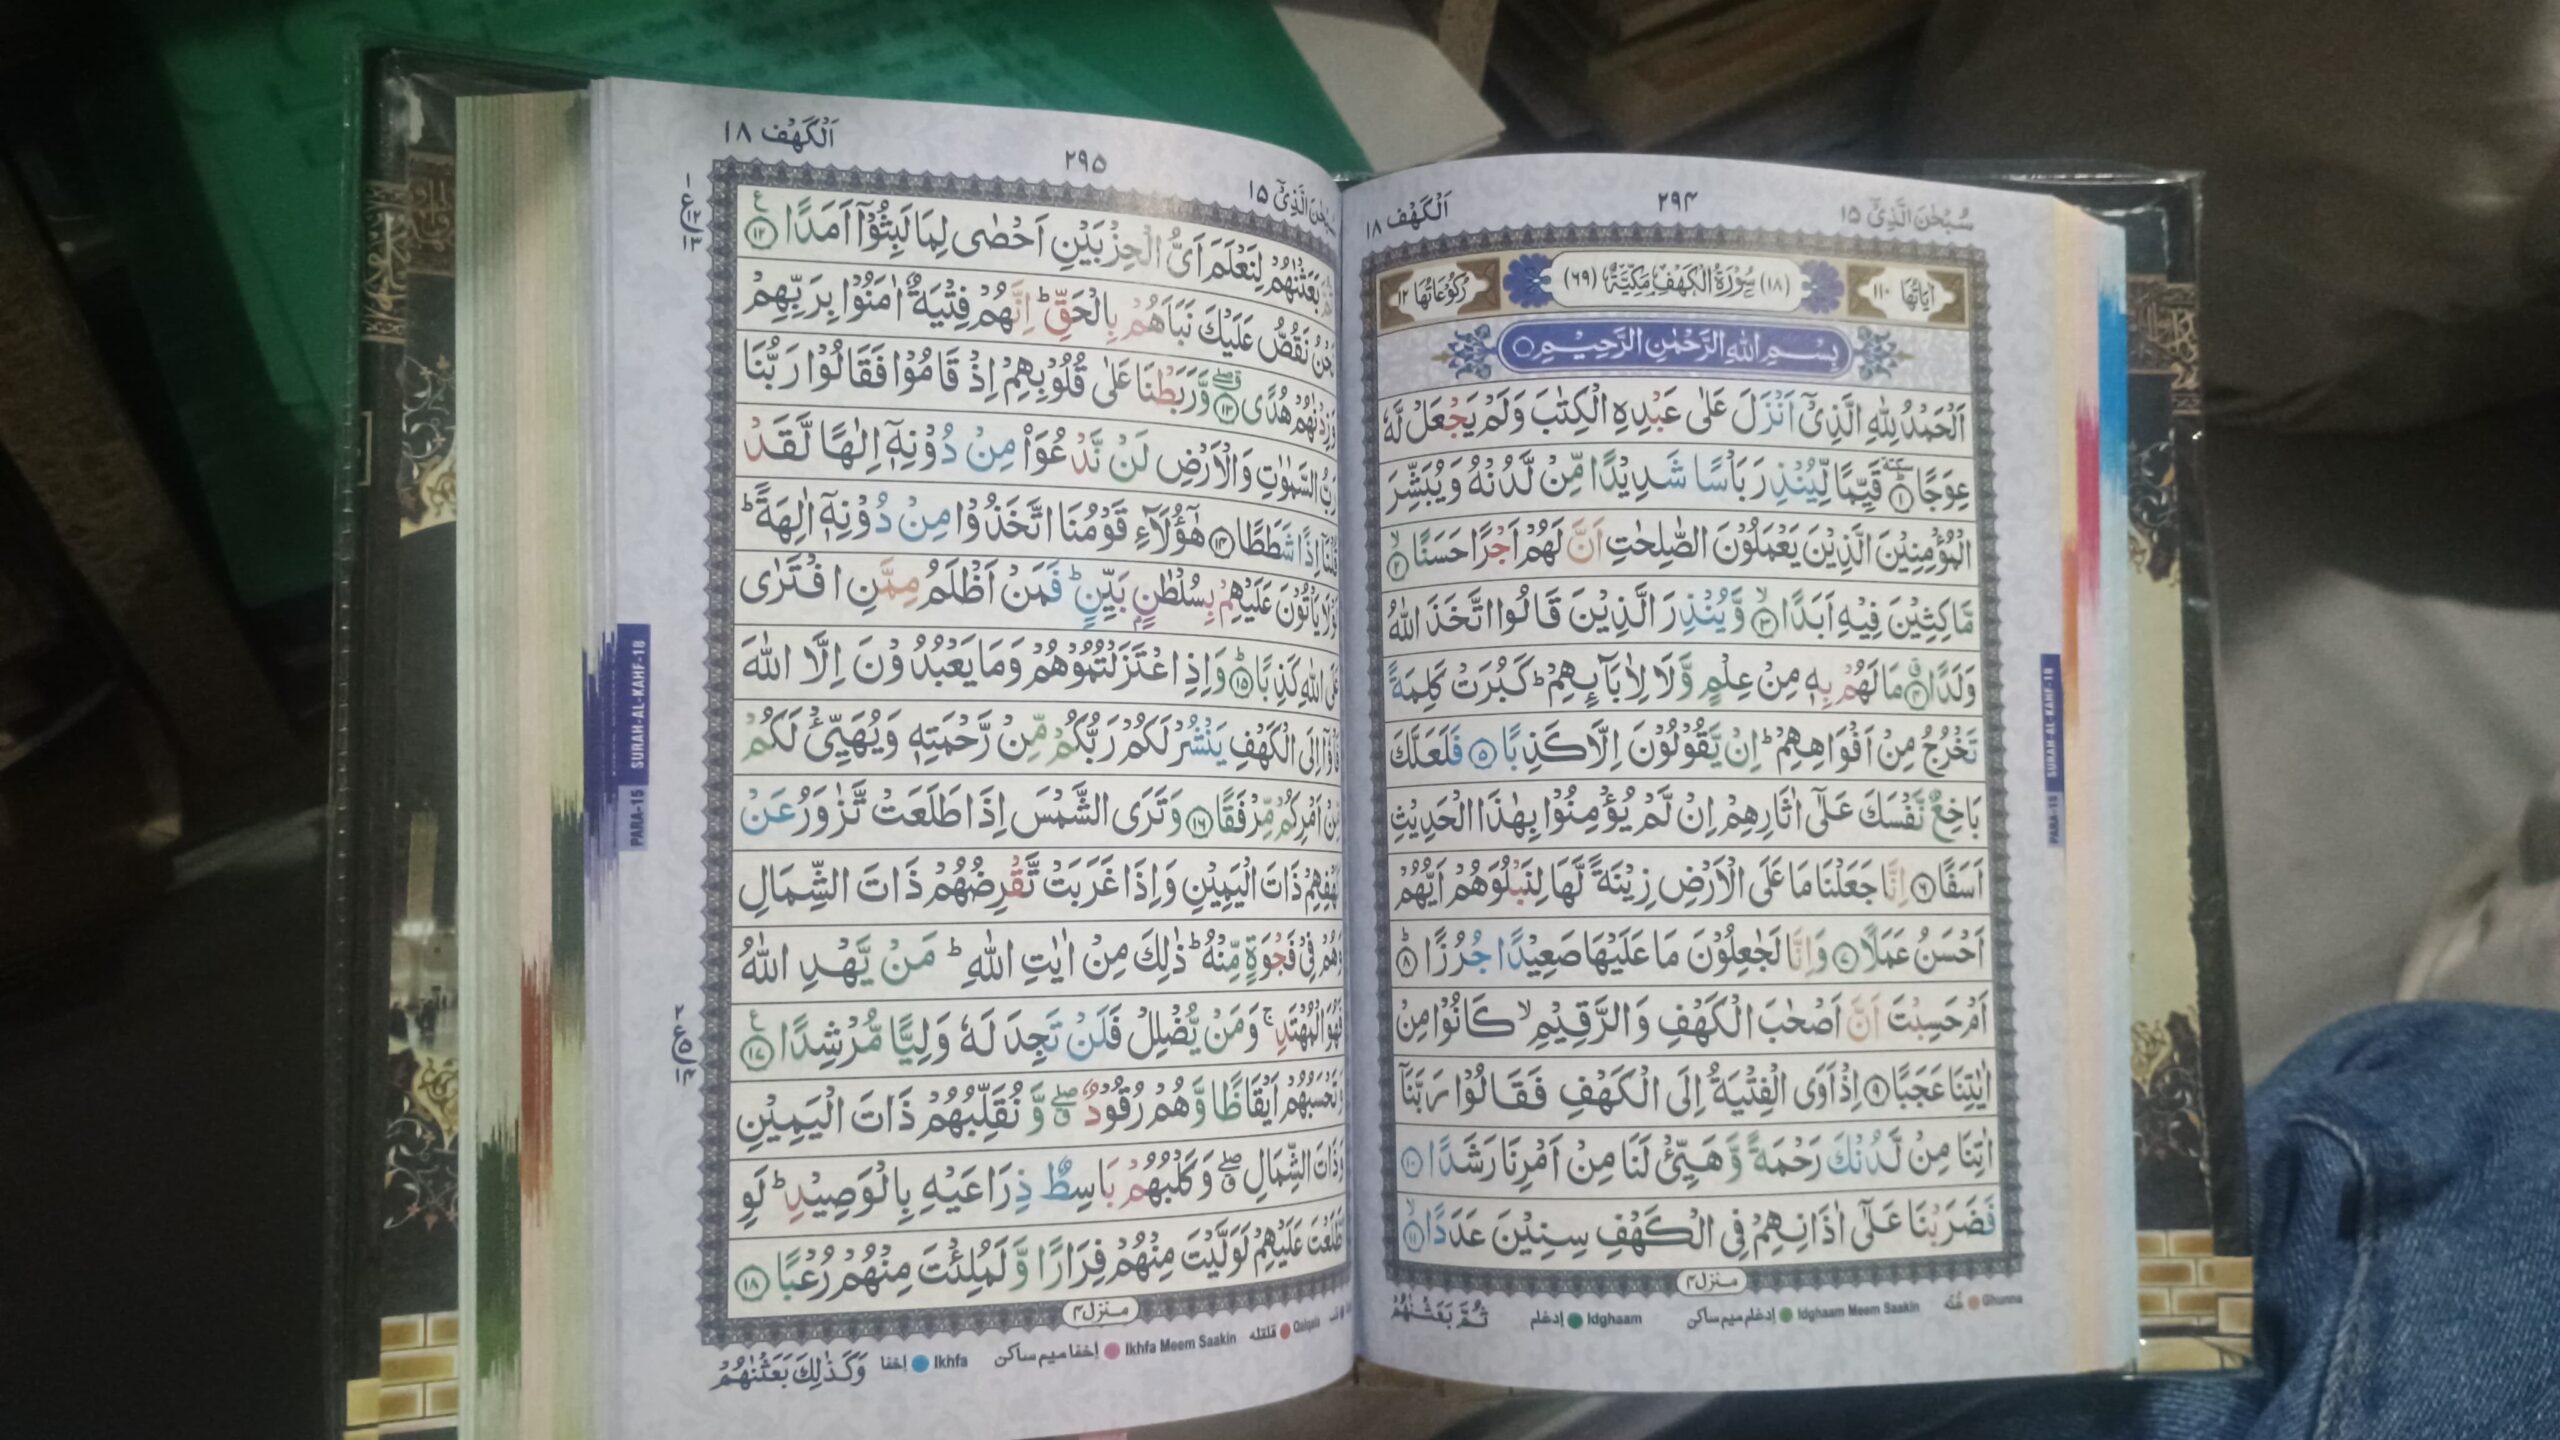 سُبْحٰنَ الَّذِيْٓ ١٥
٢٩٤
اَلْكَهْف ١٨
اٰيَاتُهَا ١١٠
(١٨) سُوْرَةُ الْكَهْفِ مَكِّيَّةٌ (٦٩)
رُكُوْعَاتُهَا ١٢
بِسْمِ اللّٰهِ الرَّحْمٰنِ الرَّحِيْمِ
اَلْحَمْدُ لِلّٰهِ الَّذِيْٓ اَنْزَلَ عَلٰى عَبْدِهِ الْكِتٰبَ وَلَمْ يَجْعَلْ لَّهٗ
عِوَجًا ؕ سكتة ۝١ قَيِّمًا لِّيُنْذِرَ بَاْسًا شَدِيْدًا مِّنْ لَّدُنْهُ وَيُبَشِّرَ
الْمُؤْمِنِيْنَ الَّذِيْنَ يَعْمَلُوْنَ الصّٰلِحٰتِ اَنَّ لَهُمْ اَجْرًا حَسَنًا ۙ۝٢
مَّاكِثِيْنَ فِيْهِ اَبَدًا ۙ۝٣ وَّيُنْذِرَ الَّذِيْنَ قَالُوا اتَّخَذَ اللّٰهُ
وَلَدًا ۗ۝٤ مَا لَهُمْ بِهٖ مِنْ عِلْمٍ وَّلَا لِاٰبَآىِٕهِمْ ؕ كَبُرَتْ كَلِمَةً
تَخْرُجُ مِنْ اَفْوَاهِهِمْ ؕ اِنْ يَّقُوْلُوْنَ اِلَّا كَذِبًا ۝٥ فَلَعَلَّكَ
بَاخِعٌ نَّفْسَكَ عَلٰٓى اٰثَارِهِمْ اِنْ لَّمْ يُؤْمِنُوْا بِهٰذَا الْحَدِيْثِ
اَسَفًا ۝٦ اِنَّا جَعَلْنَا مَا عَلَى الْاَرْضِ زِيْنَةً لَّهَا لِنَبْلُوَهُمْ اَيُّهُمْ
اَحْسَنُ عَمَلًا ۝٧ وَاِنَّا لَجٰعِلُوْنَ مَا عَلَيْهَا صَعِيْدًا جُرُزًا ؕ۝٨
اَمْ حَسِبْتَ اَنَّ اَصْحٰبَ الْكَهْفِ وَالرَّقِيْمِ ۙ كَانُوْا مِنْ
اٰيٰتِنَا عَجَبًا ۝٩ اِذْ اَوَى الْفِتْيَةُ اِلَى الْكَهْفِ فَقَالُوْا رَبَّنَآ
اٰتِنَا مِنْ لَّدُنْكَ رَحْمَةً وَّهَيِّئْ لَنَا مِنْ اَمْرِنَا رَشَدًا ۝١٠
فَضَرَبْنَا عَلٰٓى اٰذَانِهِمْ فِي الْكَهْفِ سِنِيْنَ عَدَدًا ۙ۝١١
منزل ٤
غُنَّه Ghunna
إدغام ميم ساكن Idghaam Meem Saakin
إدغام Idghaam
ثُمَّ بَعَثْنٰهُمْ
SURAH-AL-KAHF-18
PARA-15
سُبْحٰنَ الَّذِيْٓ ١٥
٢٩٥
اَلْكَهْف ١٨
بَعَثْنٰهُمْ لِنَعْلَمَ اَيُّ الْحِزْبَيْنِ اَحْصٰى لِمَا لَبِثُوْٓا اَمَدًا ۝١٢ ع
نَحْنُ نَقُصُّ عَلَيْكَ نَبَاَهُمْ بِالْحَقِّ ؕ اِنَّهُمْ فِتْيَةٌ اٰمَنُوْا بِرَبِّهِمْ
وَزِدْنٰهُمْ هُدًى ۝١٣ وَّرَبَطْنَا عَلٰى قُلُوْبِهِمْ اِذْ قَامُوْا فَقَالُوْا رَبُّنَا
رَبُّ السَّمٰوٰتِ وَالْاَرْضِ لَنْ نَّدْعُوَا۠ مِنْ دُوْنِهٖٓ اِلٰهًا لَّقَدْ
قُلْنَآ اِذًا شَطَطًا ۝١٤ هٰٓؤُلَآءِ قَوْمُنَا اتَّخَذُوْا مِنْ دُوْنِهٖٓ اٰلِهَةً ؕ
لَوْلَا يَاْتُوْنَ عَلَيْهِمْ بِسُلْطٰنٍۢ بَيِّنٍ ؕ فَمَنْ اَظْلَمُ مِمَّنِ افْتَرٰى
عَلَى اللّٰهِ كَذِبًا ؕ۝١٥ وَاِذِ اعْتَزَلْتُمُوْهُمْ وَمَا يَعْبُدُوْنَ اِلَّا اللّٰهَ
فَاْوٗٓا اِلَى الْكَهْفِ يَنْشُرْ لَكُمْ رَبُّكُمْ مِّنْ رَّحْمَتِهٖ وَيُهَيِّئْ لَكُمْ
مِّنْ اَمْرِكُمْ مِّرْفَقًا ۝١٦ وَتَرَى الشَّمْسَ اِذَا طَلَعَتْ تَّزٰوَرُ عَنْ
كَهْفِهِمْ ذَاتَ الْيَمِيْنِ وَاِذَا غَرَبَتْ تَّقْرِضُهُمْ ذَاتَ الشِّمَالِ
وَهُمْ فِيْ فَجْوَةٍ مِّنْهُ ؕ ذٰلِكَ مِنْ اٰيٰتِ اللّٰهِ ؕ مَنْ يَّهْدِ اللّٰهُ
فَهُوَ الْمُهْتَدِ ۚ وَمَنْ يُّضْلِلْ فَلَنْ تَجِدَ لَهٗ وَلِيًّا مُّرْشِدًا ۝١٧ ع
وَتَحْسَبُهُمْ اَيْقَاظًا وَّهُمْ رُقُوْدٌ ۖۗ وَّنُقَلِّبُهُمْ ذَاتَ الْيَمِيْنِ
وَذَاتَ الشِّمَالِ ۖۗ وَكَلْبُهُمْ بَاسِطٌ ذِرَاعَيْهِ بِالْوَصِيْدِ ؕ لَوِ
اطَّلَعْتَ عَلَيْهِمْ لَوَلَّيْتَ مِنْهُمْ فِرَارًا وَّلَمُلِئْتَ مِنْهُمْ رُعْبًا ۝١٨
منزل ٤
قلقله Qalqala
إخفا ميم ساكن Ikhfa Meem Saakin
إخفا Ikhfa
وَكَذٰلِكَ بَعَثْنٰهُمْ
SURAH-AL-KAHF-18
PARA-15
١
ع ١٢
١٣
٢
ع ٥
١٤